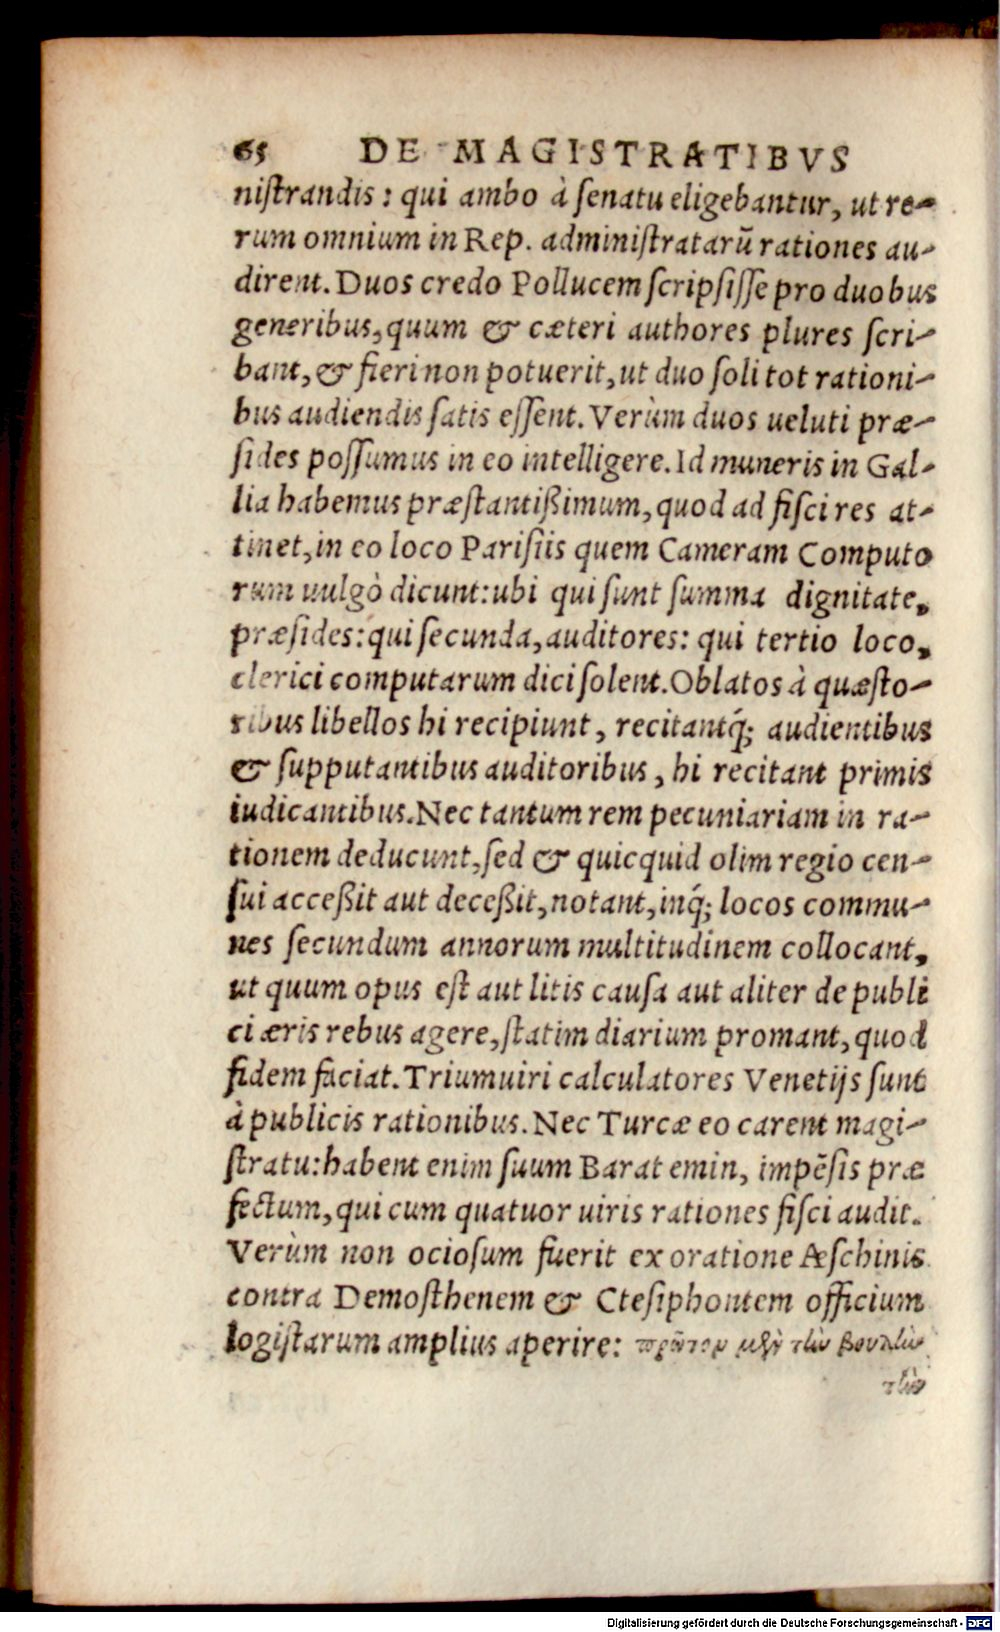 65 DE MAGISTRATIBVS
niſtrandis: qui ambo à ſenatu eligebantur, ut re-
rum omnium in Rep. adminiſtratarū rationes au-
dirent. Duos credo Pollucem ſcripſiſſe pro duobus
generibus, quum & cæteri authores plures ſcri-
bant, & fieri non potuerit, ut duo ſoli tot rationi-
bus audiendis ſatis eſſent. Verùm duos ueluti præ-
ſides poſſumus in eo intelligere. Id muneris in Gal-
lia habemus præſtantißimum, quod ad fiſci res at-
tinet, in eo loco Pariſiis quem Cameram Computo
rum uulgò dicunt: ubi qui ſunt ſumma dignitate,
præſides: qui ſecunda, auditores: qui tertio loco,
clerici computarum dici ſolent. Oblatos à quæſto-
ribus libellos hi recipiunt, recitantq́; audientibus
& ſupputantibus auditoribus, hi recitant primis
iudicantibus. Nec tantum rem pecuniariam in ra-
tionem deducunt, ſed & quicquid olim regio cen-
ſui acceßit aut deceßit, notant, inq́; locos commu-
nes ſecundum annorum multitudinem collocant,
ut quum opus eſt aut litis cauſa aut aliter de publi
ci æris rebus agere, ſtatim diarium promant, quod
fidem faciat. Triumuiri calculatores Venetijs ſunt
à publicis rationibus. Nec Turcæ eo carent magi-
ſtratu: habent enim ſuum Barat emin, impēſis præ
fectum, qui cum quatuor uiris rationes fiſci audit.
Verùm non ocioſum fuerit ex oratione Æſchinis
contra Demoſthenem & Cteſiphontem officium
logiſtarum amplius aperire: πρῶτον μὲν τὴν βουλὴν
τὴν
Digitalisierung gefördert durch die Deutsche Forschungsgemeinschaft - DFG